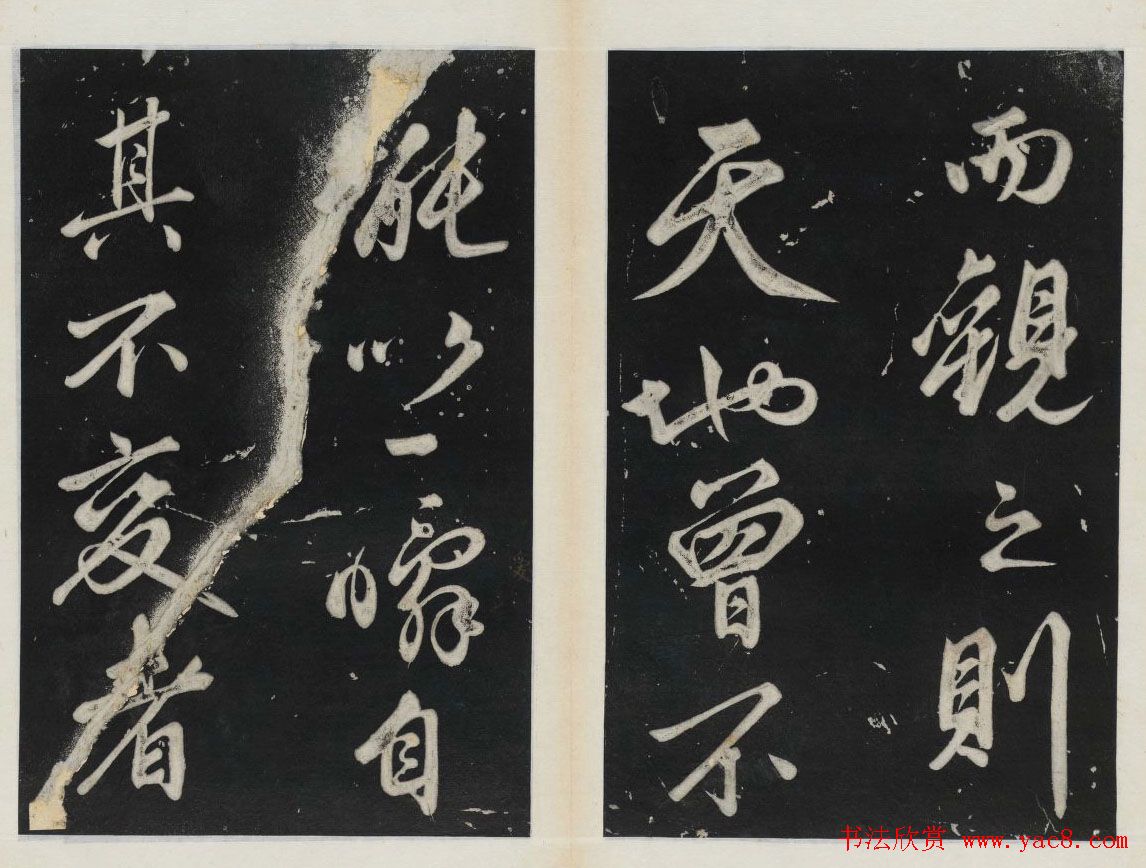 而觀之則
天地曾不
能以一瞬自
其不变者
书法欣赏 www.yac8.com